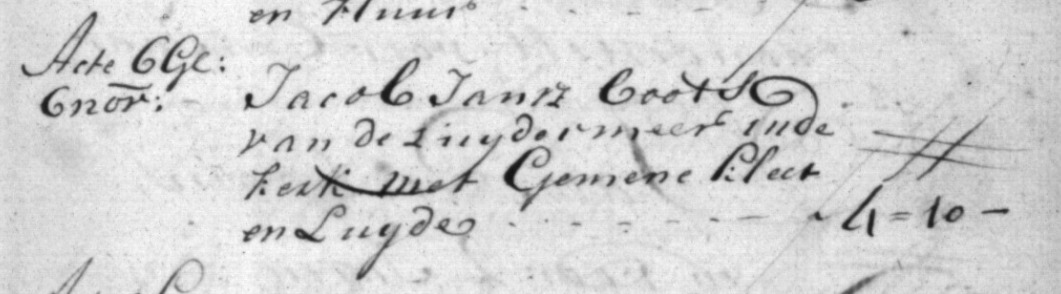 en Huur
Acte 6 Gl:
6 nov:
Jacob Jansz Coots
van de Zuydermeer inde
kerk met Gemene kleet
en Luyde - - - - 4=10-